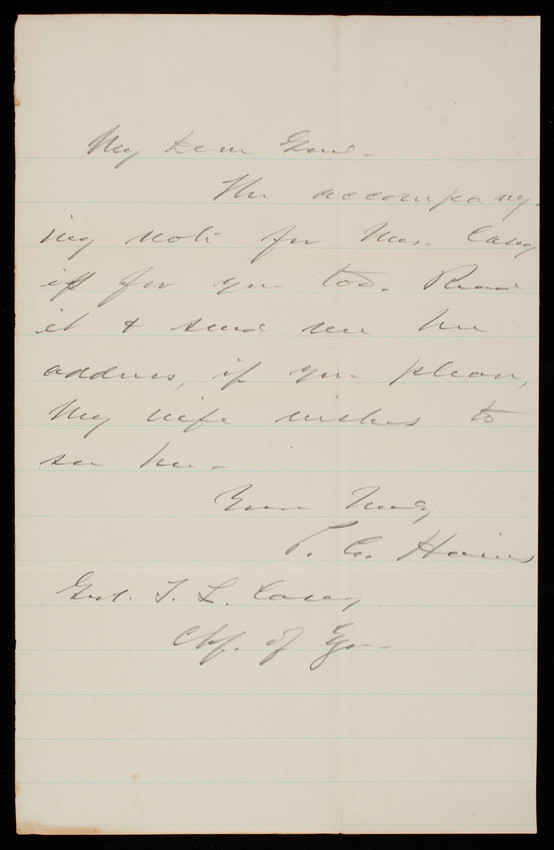 My Dear Genl.
The accompany-
ing note for Mrs. Casey
is for you too. Read
it & send me her
address, if you please,
My wife wishes to
see her.
Yours Truly
P. C. Hains
Genl. T. L. Casey
Chf. of Eng.